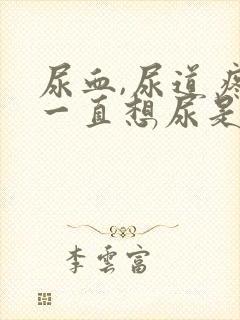 尿血,尿道
一直想尿是
李雲富